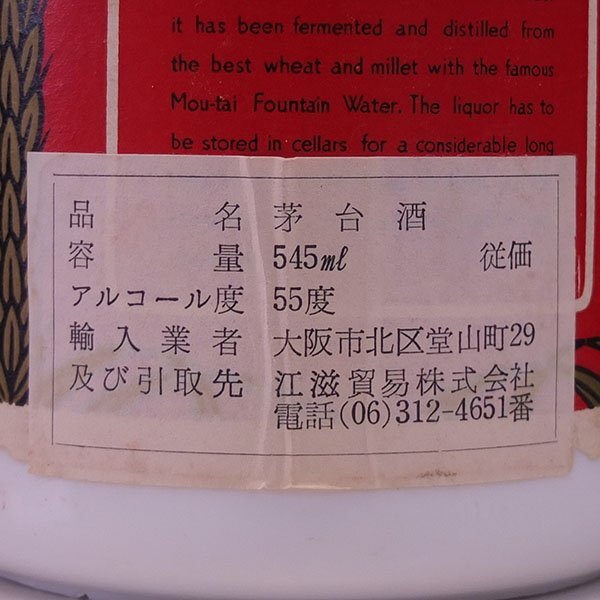 it has been fermented and distilled from
the best wheat and millet with the famous
Mou-tai Fountain Water. The liquor has to
be stored in cellars for a considerable long
品名 茅台酒
容量 545ml 従価
アルコール度 55度
輸入業者 大阪市北区堂山町29
及び引取先 江滋貿易株式会社
電話(06)312-4651番